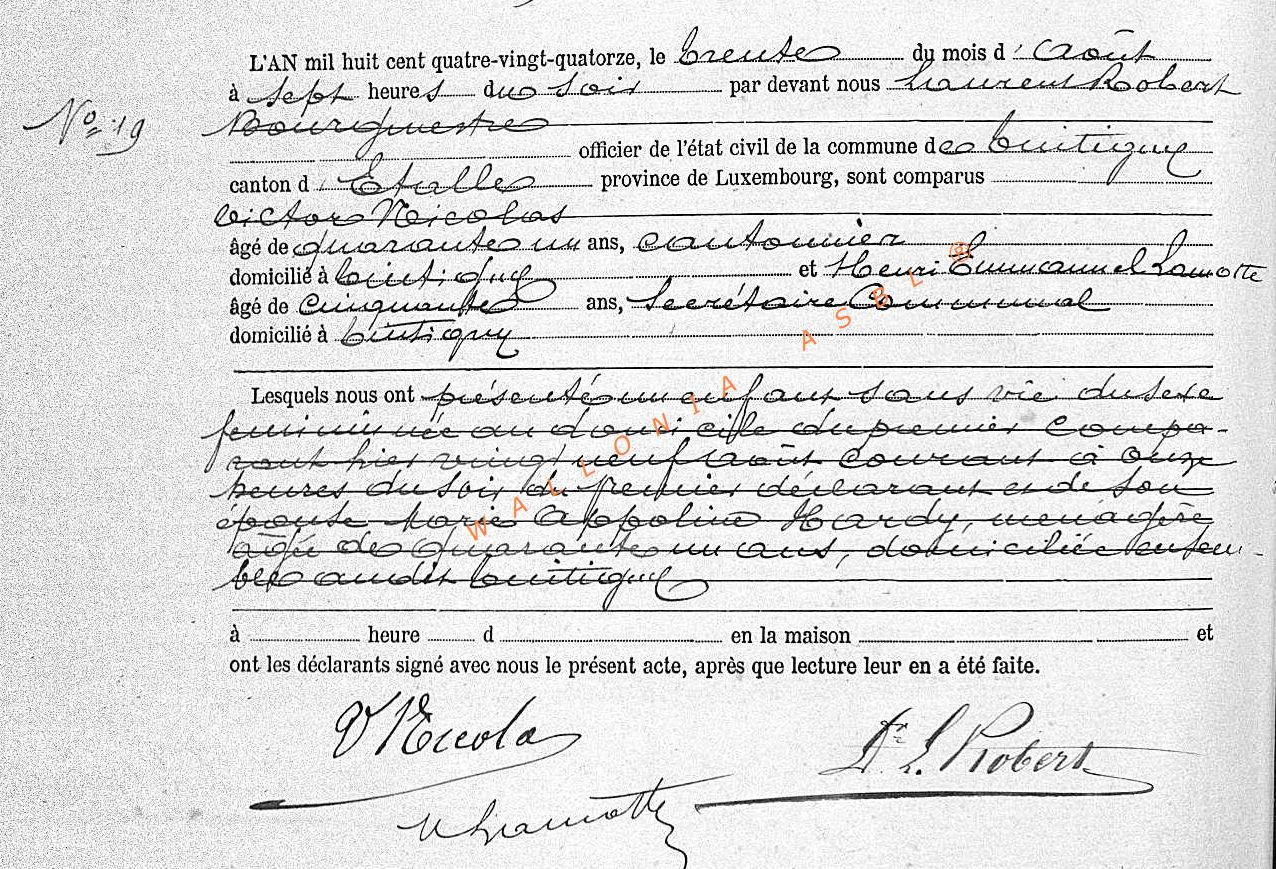 L'AN mil huit cent quatre-vingt-quatorze, le trente du mois d'Août
à sept heures du soir par devant nous Laurent Robert
Nº 19
Bourgmestre
officier de l'état civil de la commune de Tintigny
canton d'Etalle province de Luxembourg, sont comparus
Victor Nicolas
âgé de quarante un ans, cantonnier
domicilié à Tintigny et Henri Emmanuel Lamotte
âgé de Cinquante ans, Secrétaire Communal
domicilié à Tintigny
Lesquels nous ont présenté un enfant sans vie du sexe
feminin née au domicile du premier Compa-
rant hier vingt neuf août courant à onze
heures du soir du premier déclarant et de son
épouse Marie Appoline Hardy, menagère
agée de quarante un ans, domiciliée ensem-
ble audit Tintigny
à heure d en la maison et
ont les déclarants signé avec nous le présent acte, après que lecture leur en a été faite.
V Nicolas
Dr L. Robert
Lamotte
WALLONIA ASBL @